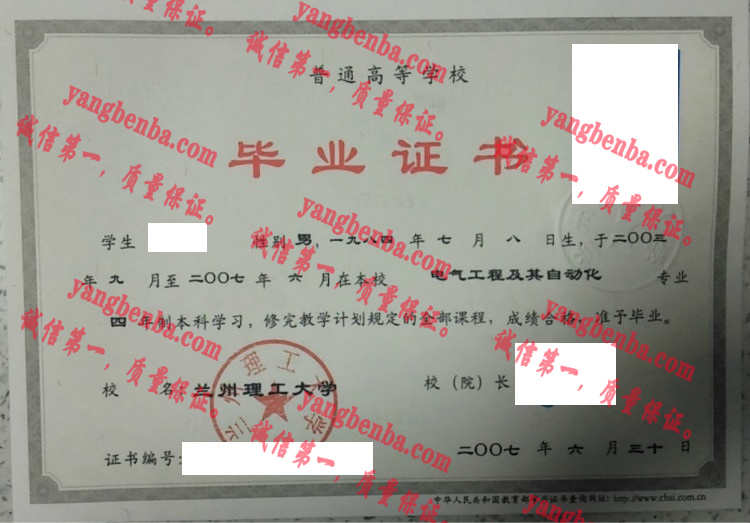 普通高等学校
毕业证书
学生 性别 男，一九八四 年 七 月 八 日生，于二〇〇三
年 九 月至 二〇〇七 年 六 月在本校 电气工程及其自动化 专业
四 年制本科学习，修完教学计划规定的全部课程，成绩合格，准予毕业。
校 名：兰州理工大学 校（院）长
兰州理工大学
证书编号： 二〇〇七 年 六 月 三十 日
中华人民共和国教育部学历证书查询网址：http://www.chsi.com.cn
诚信第一，质量保证。
yangbenba.com
诚信第一，质量保证。
yangbenba.com
诚信第一，质量保证。
yangbenba.com
诚信第一，质量保证。
yangbenba.com
诚信第一，质量保证。
yangbenba.com
诚信第一，质量保证。
yangbenba.com
诚信第一，质量保证。
yangbenba.com
诚信第一，质量保证。